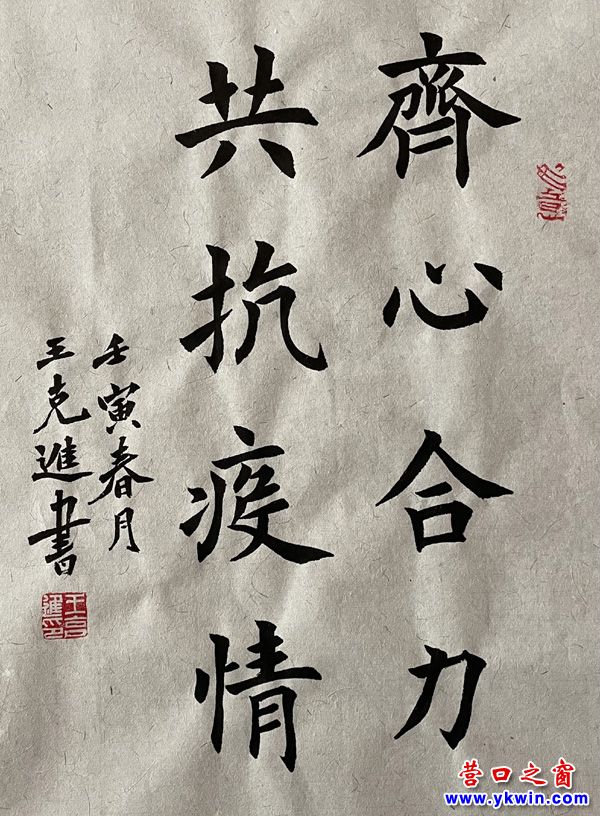 齊心合力
共抗疫情
壬寅春月
王克進書
王克進印
营口之窗
www.ykwin.com